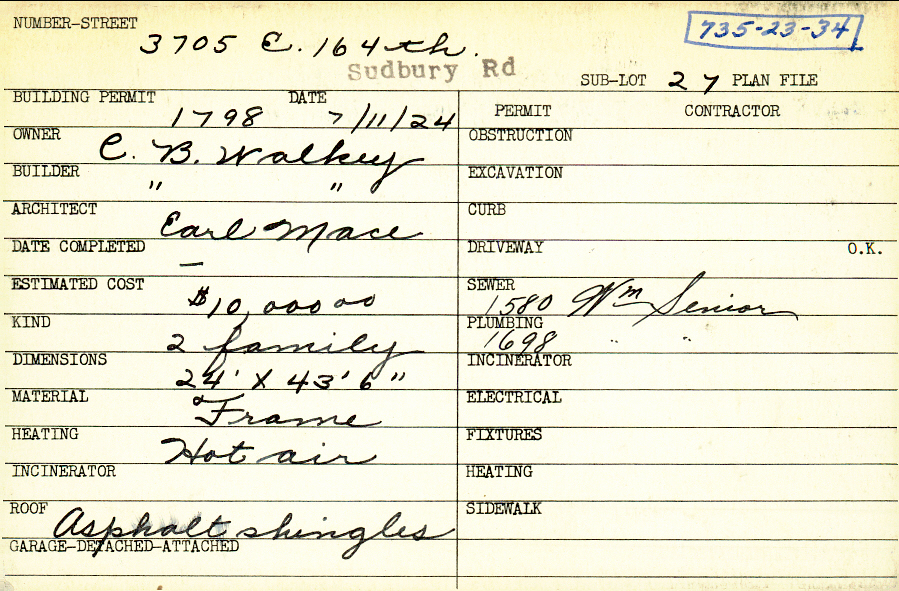 NUMBER-STREET
3705 E. 164th.
735-23-34
Sudbury Rd
SUB-LOT 27 PLAN FILE
BUILDING PERMIT DATE
1798 7/11/24
PERMIT CONTRACTOR
OWNER C. B. Walkey
OBSTRUCTION
BUILDER " "
EXCAVATION
ARCHITECT Carl Mace
CURB
DATE COMPLETED —
DRIVEWAY O.K.
ESTIMATED COST $10,000 00
SEWER 1580 Wm Senior
KIND 2 family
PLUMBING 1698 " "
DIMENSIONS 24' X 43' 6"
INCINERATOR
MATERIAL Frame
ELECTRICAL
HEATING Hot air
FIXTURES
INCINERATOR
HEATING
ROOF Asphalt shingles
SIDEWALK
GARAGE-DETACHED-ATTACHED